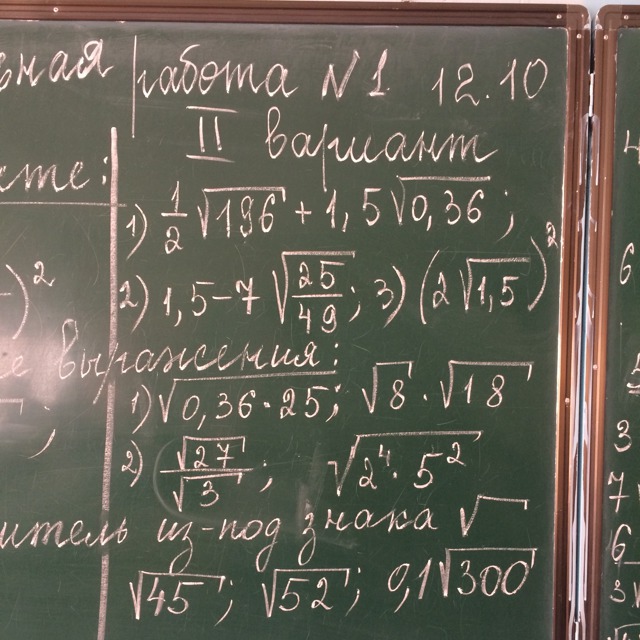 вная работа N1 12.10
II вариант
1) 1/2 √196 + 1,5√0,36 ;
)² 2) 1,5-7 √25/49 ; 3) (2√1,5)²
выражения:
; 1) √0,36·25; √8 · √18
2) √27/√3 ; √2⁴·5²
из-под знака √
√45 ; √52 ; 0,1√300